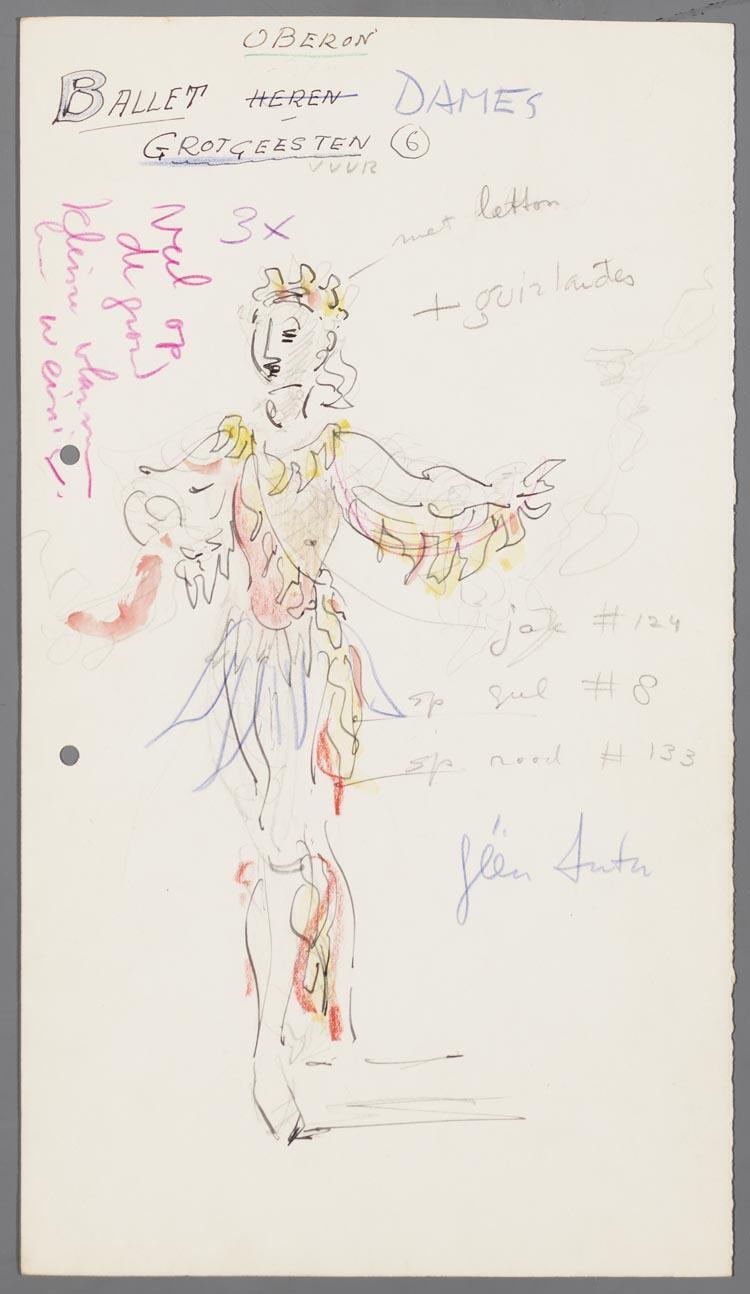 OBERON
BALLET HEREN DAMES
GROTGEESTEN 6
VUUR
3x
met letton
+ guirlandes
Veel op
de grond
kleine vlammen
jak # 124
sp geel # 8
sp rood # 133
géén tutu